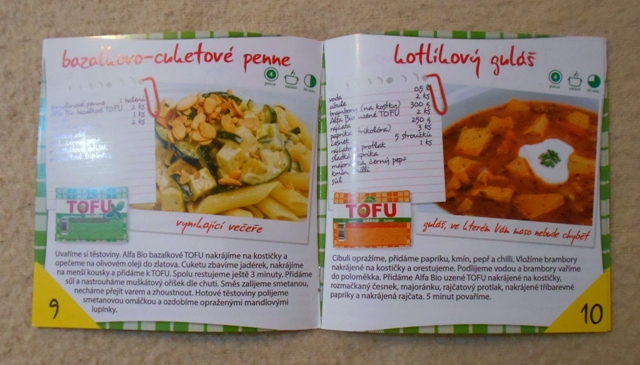 bazalkovo-cuketové penne
penne 1 balení
Alfa Bio bazalkové TOFU 2 ks
1 ks
2 ks
TOFU
vynikající večeře
Uvaříme si těstoviny. Alfa Bio bazalkové TOFU nakrájíme na kostičky a
opečeme na olivovém oleji do zlatova. Cuketu zbavíme jadérek, nakrájíme
na menší kousky a přidáme k TOFU. Spolu restujeme ještě 3 minuty. Přidáme
sůl a nastrouháme muškátový oříšek dle chuti. Směs zalijeme smetanou,
necháme přejít varem a zhoustnout. Hotové těstoviny polijeme
smetanovou omáčkou a ozdobíme opraženými mandlovými
lupínky.
9
kotlíkový guláš
voda 0,5 l
cibule 2 ks
brambory (na kostky) 300 g
Alfa Bio uzené TOFU 2 ks
rajčata 250 g
paprika (trikolóra) 3 ks
česnek 5 stroužků
rajčatový protlak 1 ks
sladká paprika
majoránka, černý pepř
kmín, chilli
sůl
TOFU
uzené
guláš, ve kterém Vám maso nebude chybět
Cibuli opražíme, přidáme papriku, kmín, pepř a chilli. Vložíme brambory
nakrájené na kostičky a orestujeme. Podlijeme vodou a brambory vaříme
do poloměkka. Přidáme Alfa Bio uzené TOFU nakrájené na kostičky,
rozmačkaný česnek, majoránku, rajčatový protlak, nakrájené tříbarevné
papriky a nakrájená rajčata. 5 minut povaříme.
10